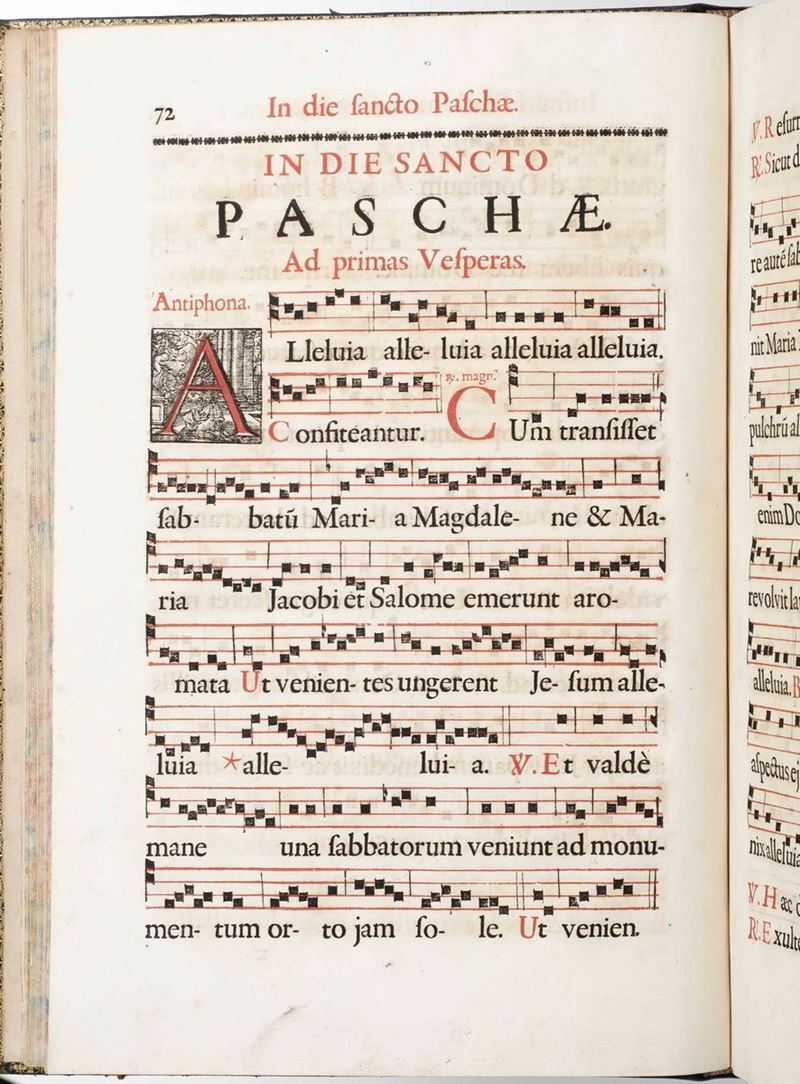 72 In die ſancto Paſchæ.
IN DIE SANCTO
PASCHÆ.
Ad primas Veſperas.
Antiphona.
ALleluia alle- luia alleluia alleluia.
℞. magn.
Confiteantur. CUm tranſiſſet
ſab- batū Mari- a Magdale- ne & Ma-
ria Jacobi et Salome emerunt aro-
mata Ut venien- tes ungerent Je- ſum alle-
luia *alle- lui- a. ℣. Et valdè
mane una ſabbatorum veniunt ad monu-
men- tum or- to jam ſo- le. Ut venien.
℣. Reſurr
℟. Sicut d
re autē ſab
nit Maria
pulchrū al
enim Do
revolvit la
alleluia.
aſpectus ej
nix alleluia
℣. Hæc d
℟. Exulte